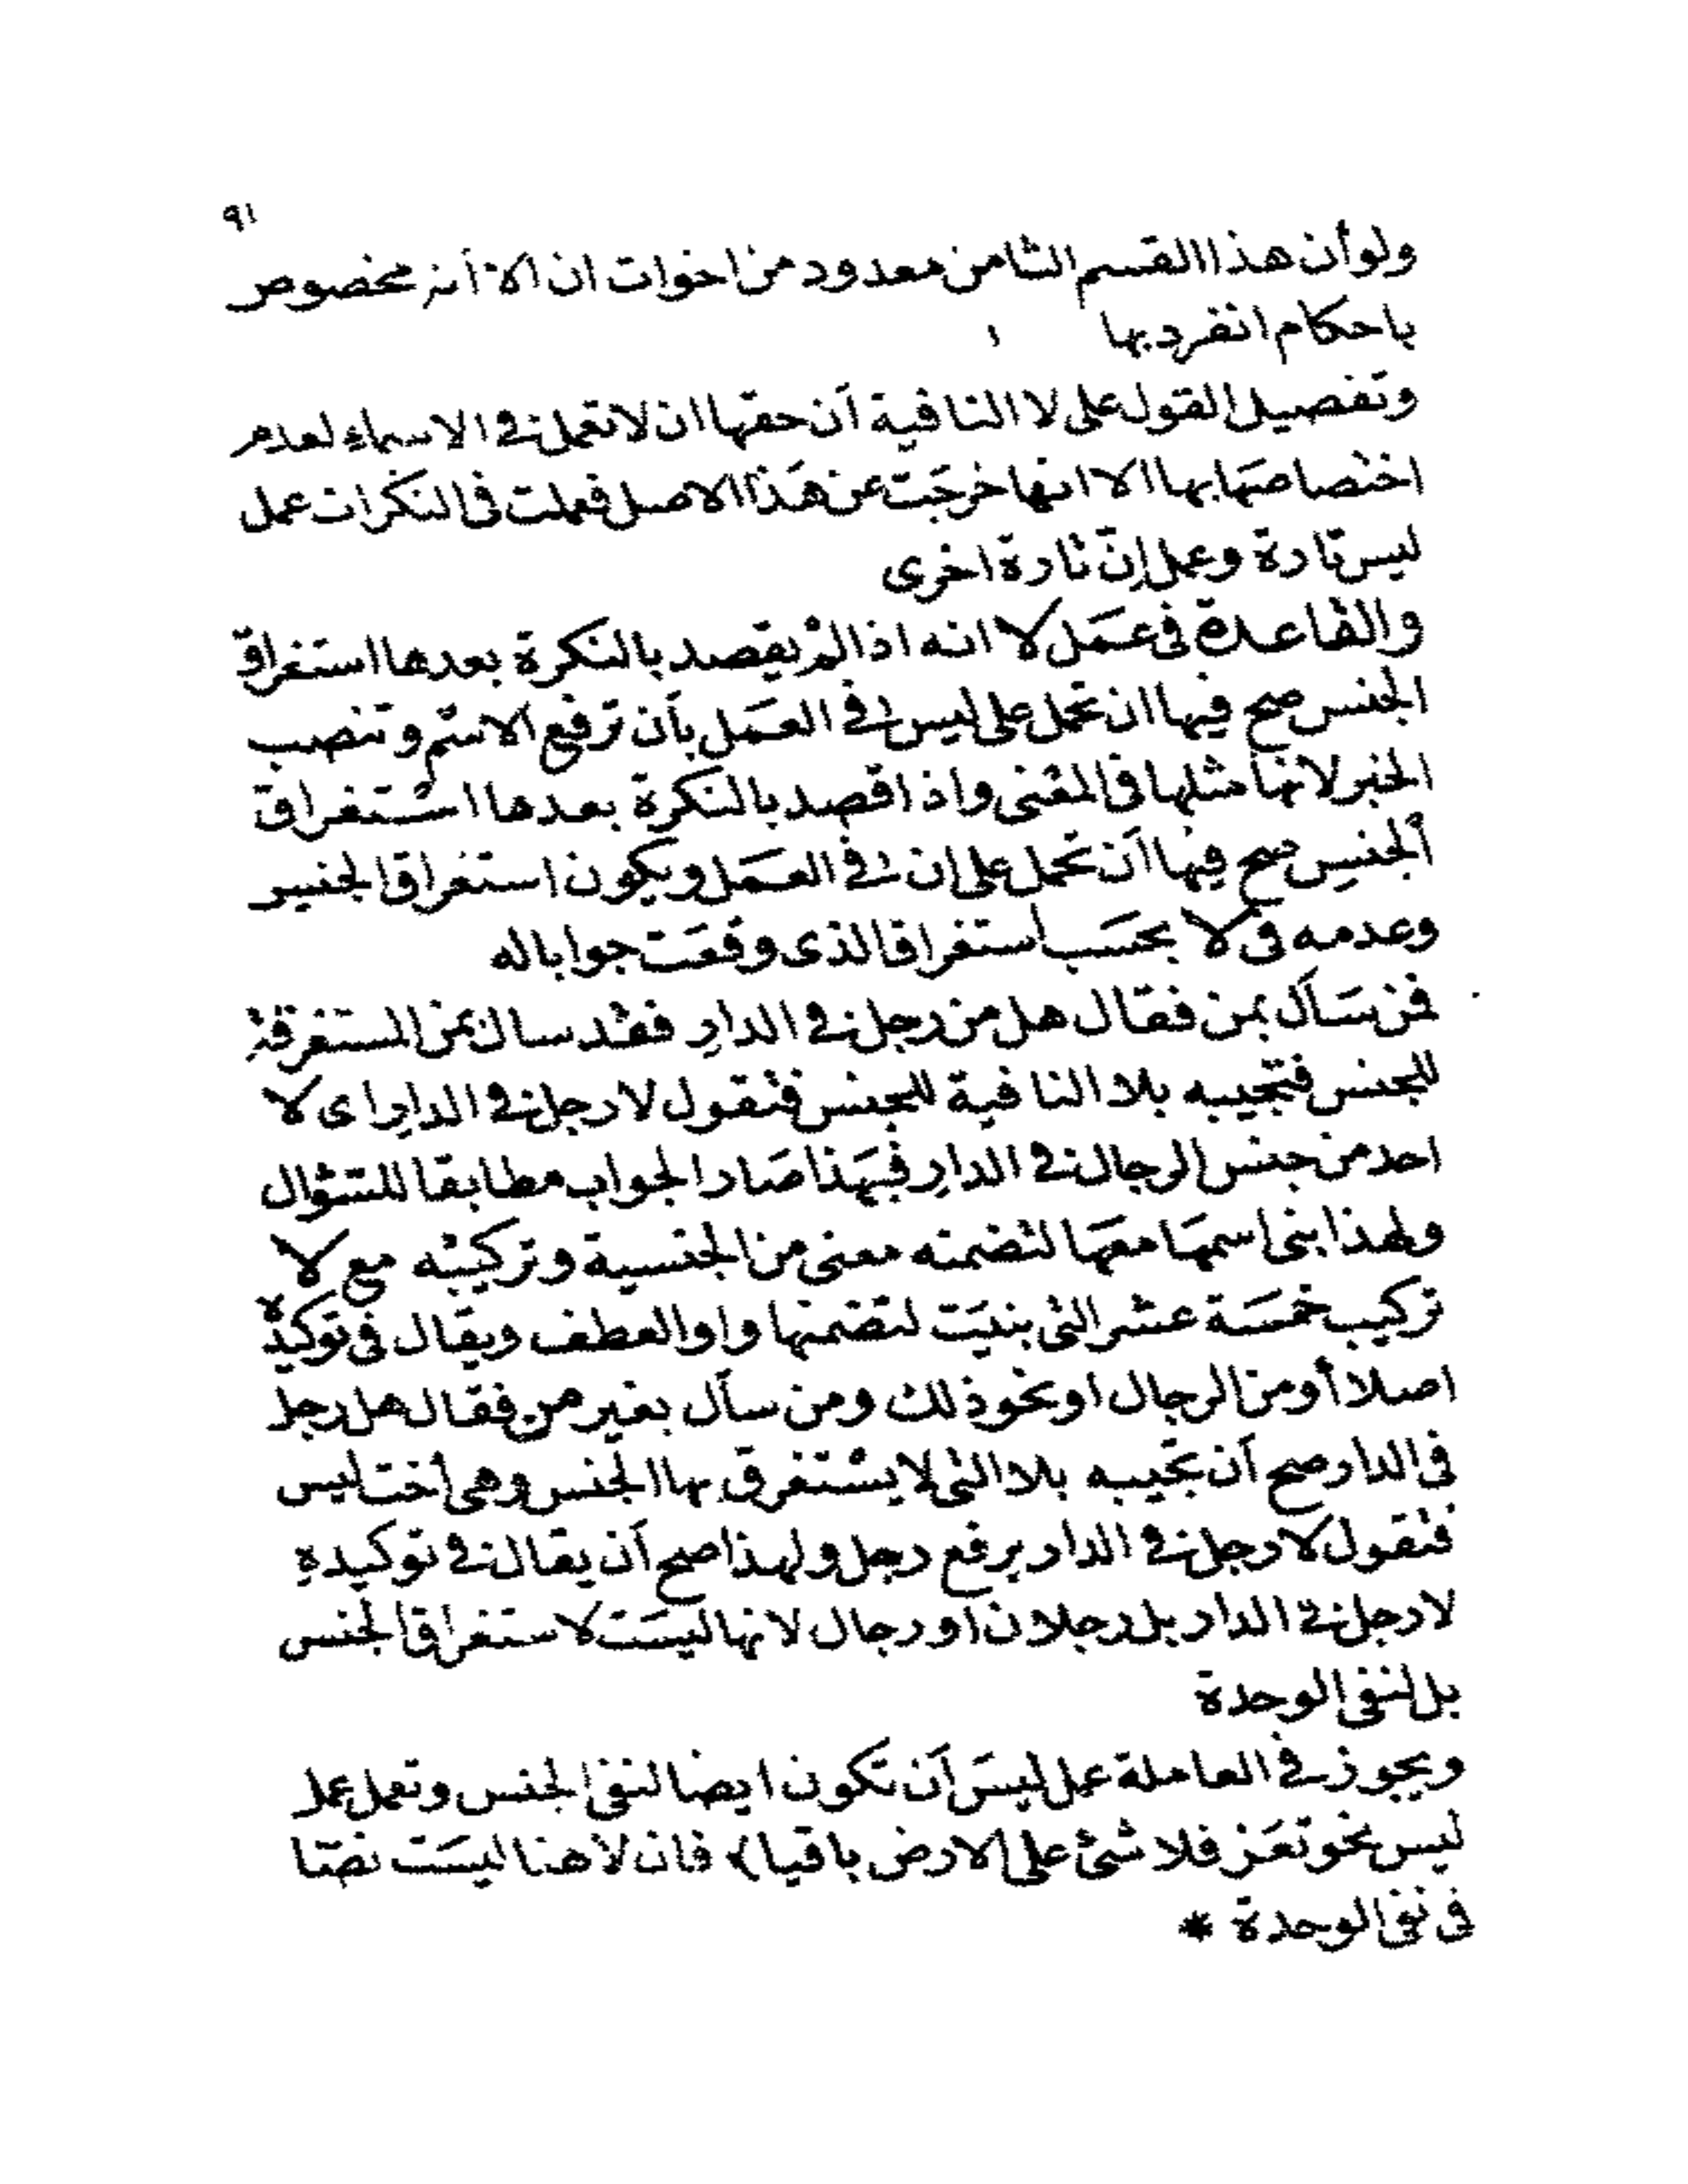 ٩١
ولو أن هذا القسم الثامن معدود من اخوات ان الا أنه مخصوص
باحكام انفرد بها
وتفصيل القول على لا النافية أن حقها ان لا تعمل في الاسماء لعدم
اختصاصها بها الا انها خرجَت عن هَذا الاصل فعملت في النكرات عمل
ليس تارة وعمل إنّ تارة اخرى
والقاعدة في عمَل لا انه اذا لمْ يقصد بالنكرة بعدها استغراق
الجنس صح فيها ان تحمل على ليس في العمَل بأن ترفع الاسْم وتنصب
الخبر لانها مثلها في المعْنى واذا قصد بالنكرة بعدها اسْتغراق
ألجنسِ صح فيها أن تحمل على ان في العمَل ويكون استغراق الجنس
وعدمه في لا بحسَب استغراق الذى وقعَت جوابا له
فمن سَأل بمن فقال هل من رجل في الدارِ فقْد سال بمن المستغرقة
للجنس فتجيبه بلا النافية للجنس فتقول لا رجل في الدارِ اى لا
احد من جنس الرجال في الدارِ فبهَذا صَار الجواب مطابقا للسّؤال
ولهذا بنى اسمهَا معهَا لتضمنه معنى من الجنسية وتركيبْه مع لا
تركيب خمسَة عشر التى بنيَت لتضمنها واو العطف ويقال في توكيده
اصلا أو من الرجال او نحو ذلك ومن سأل بغير من فقال هل رجل
في الدار صح أن تجيبه بلا التى لا يسْتغرق بها الجنس وهى أخت ليس
فتقول لا رجل في الدار برفع رجل ولهذا صح أن يقال في توكيدهِ
لا رجل في الدار بل رجلان او رجال لانها ليسَت لاستغراق الجنس
بل لنفي الوحدة
ويجوز في العاملة عمل ليسَ أن تكون ايضا لنفي الجنس وتعمل عمل
ليس نحو تعَز فلا شئ على الارض باقيا) فان لا هنا ليسَت نصّا
في نفي الوحدة *